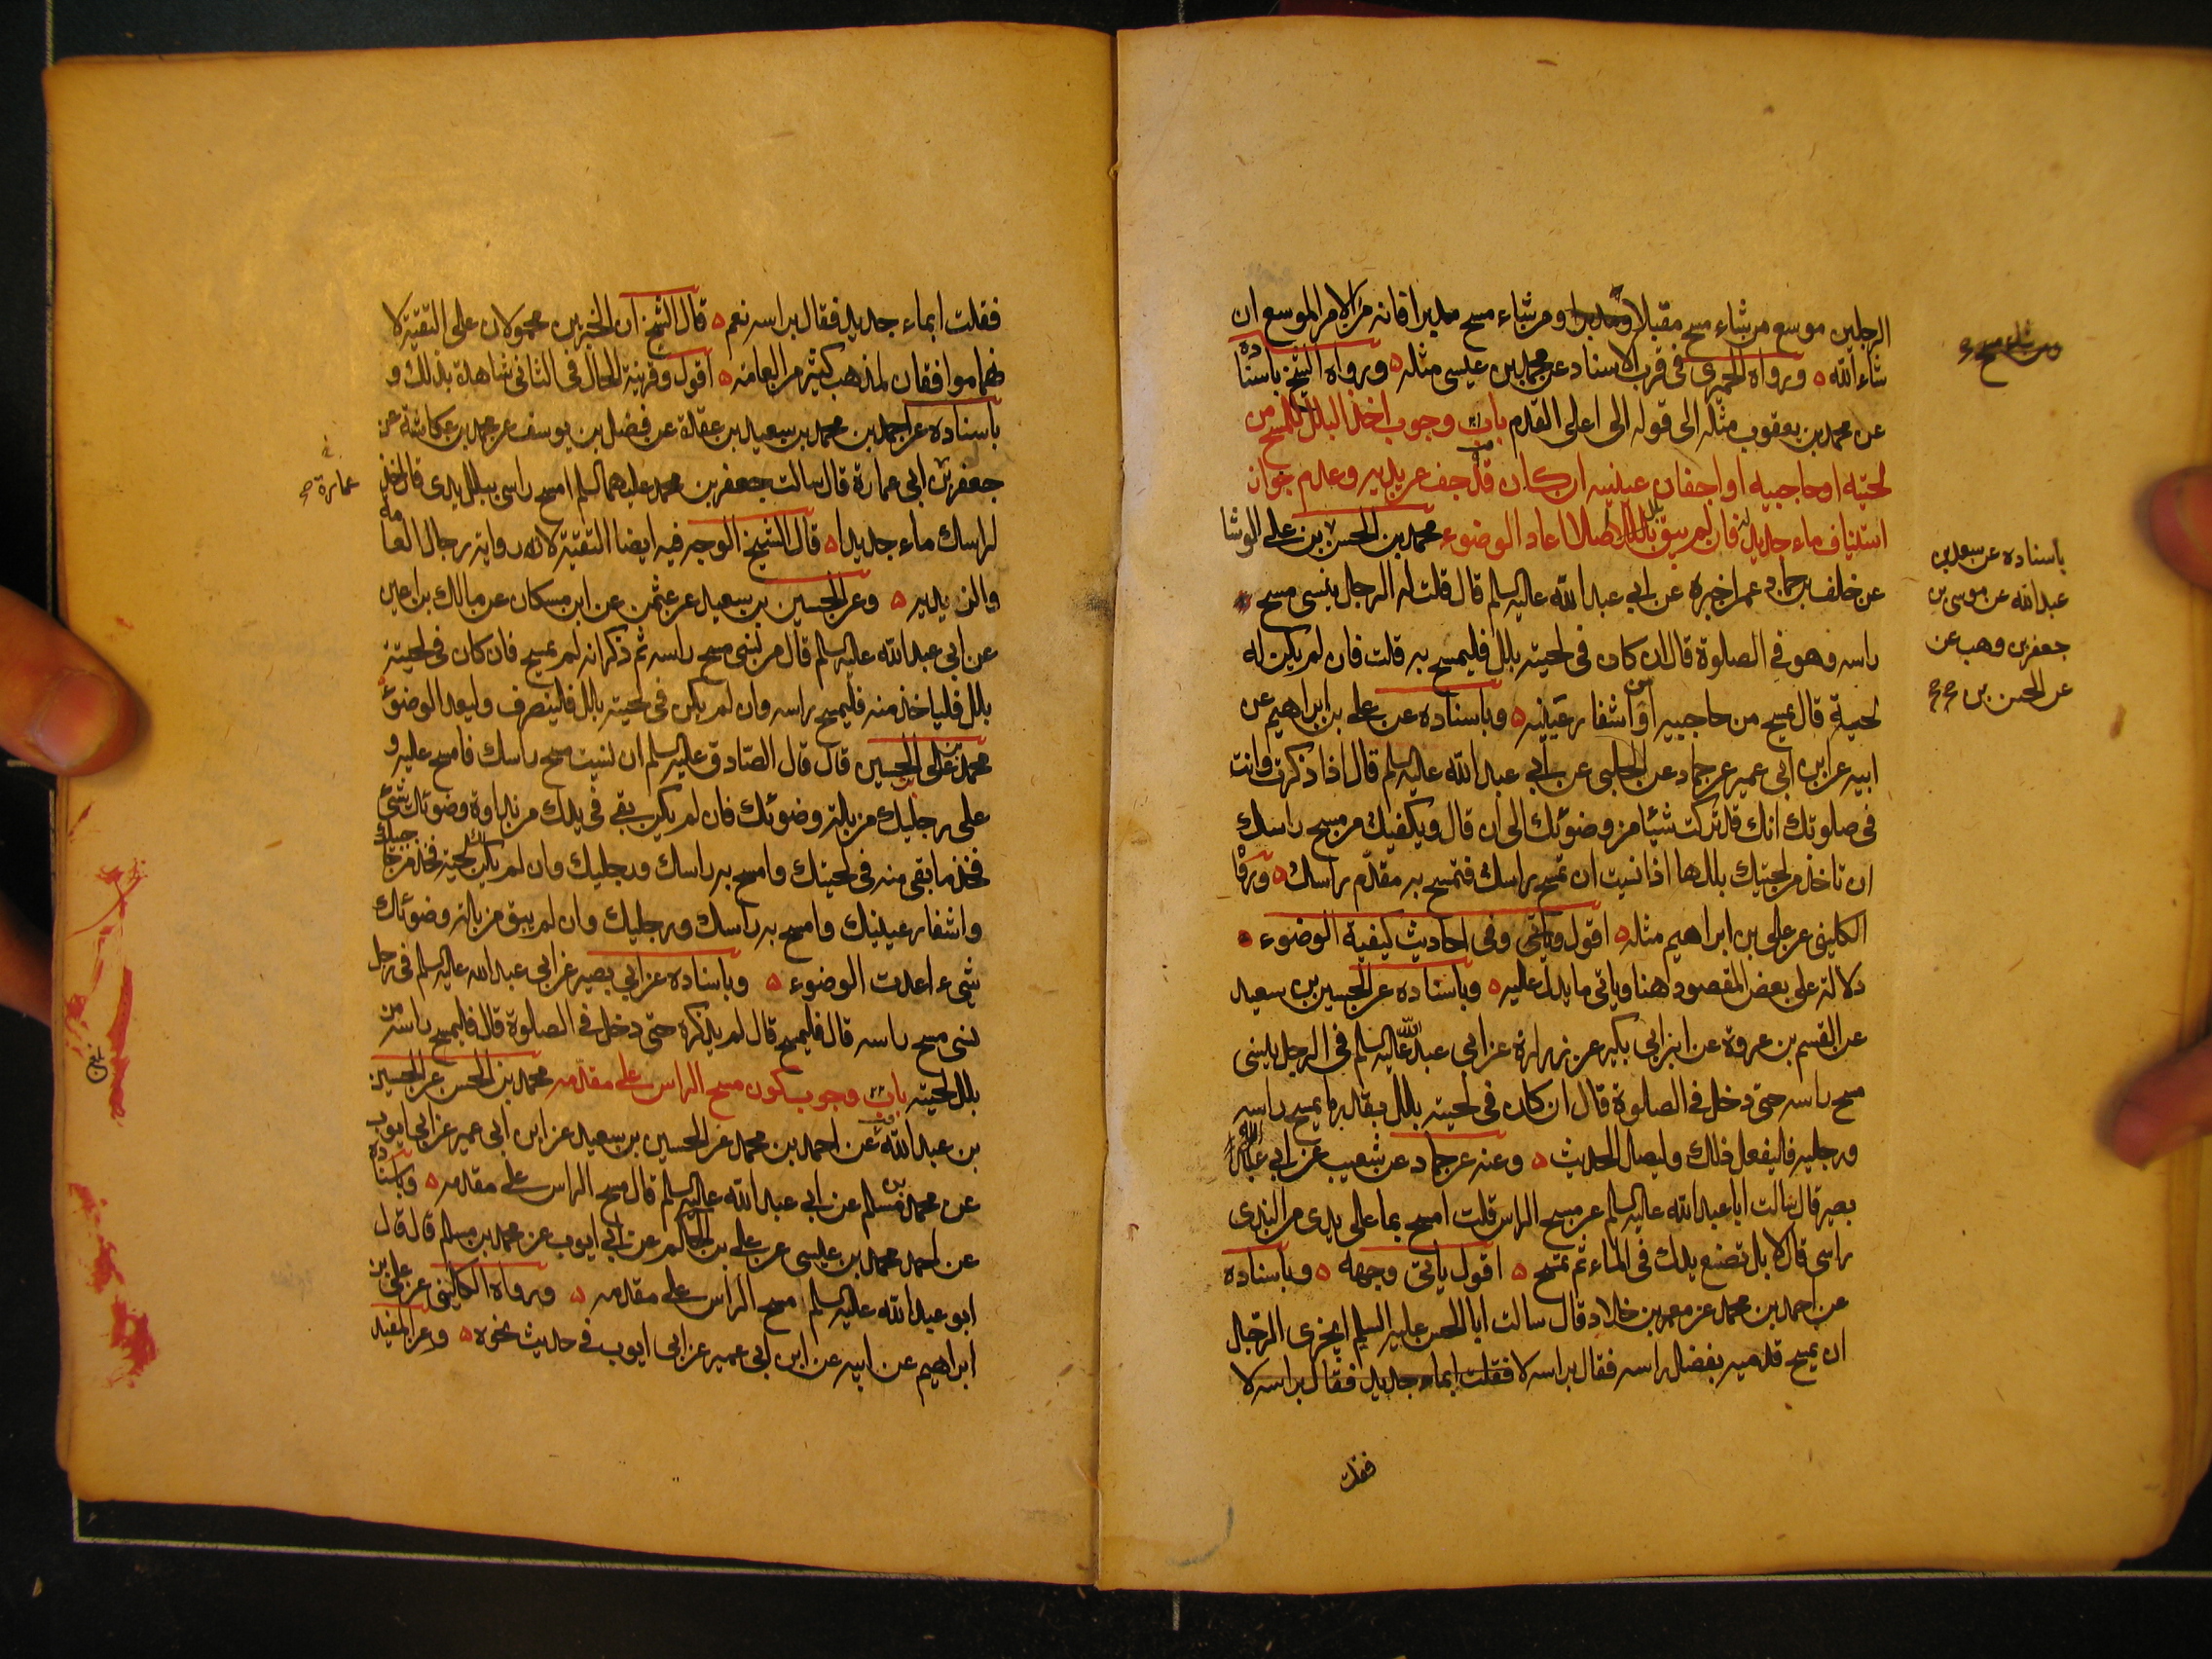 الرجلين موسع من شاء مسح مقبلا ومن شاء مسح مدبرا فانه من الامر الموسع ان
شاء الله ه ورواه الحميري في قرب الاسناد عن محمد بن عيسى مثله ه ورواه الشيخ باسناده
عن محمد بن يعقوب مثله الى قوله الى اعلى القدم باب وجوب اخذ البلل للمسح من
لحيته او حاجبيه او اجفان عينيه ان كان قد جف عن يديه وعدم جواز
استيناف ماء جديد له فان لم يبق بلل اصلا اعاد الوضوء محمد بن الحسن بن علي الوشا
عن خلف بن حماد عمن اخبره عن ابي عبد الله عليه السلم قال قلت له الرجل ينسى مسح
راسه وهو في الصلوة قال ان كان في لحيته بلل فليمسح به قلت فان لم يكن له
لحية قال يمسح من حاجبيه او من اشفار عينيه ه وباسناده عن علي بن ابراهيم عن
ابيه عن ابن ابي عمير عن حماد عن الحلبي عن ابي عبد الله عليه السلم قال اذا ذكرت وانت
في صلوتك انك قد تركت شيئا من وضوئك الى ان قال ويكفيك من مسح راسك
ان تاخذ من لحيتك بللها اذا نسيت ان تمسح براسك فتمسح به مقدم راسك ه ورواه
الكليني عن علي بن ابراهيم مثله ه اقول وياتي وفي احاديث كيفية الوضوء ه
دلالة على بعض المقصود هنا وياتي ما يدل عليه ه وباسناده عن الحسين بن سعيد
عن القسم بن عروة عن ابن ابي بكير عن زرارة عن ابي عبد الله عليه السلم في الرجل ينسى
مسح راسه حتى دخل في الصلوة قال ان كان في لحيته بلل بقدر ما يمسح راسه
ورجليه فليفعل ذلك وليصل الحديث ه وعنه عن حماد عن شعيب عن ابي
بصير قال سالت ابا عبد الله عليه السلم عن مسح الراس قلت امسح بما على يدي من الندى
راسي قال لا بل تضع يدك في الماء ثم تمسح ه اقول ياتي وجهه ه وباسناده
عن احمد بن محمد عن معمر بن خلاد قال سالت ابا الحسن عليه السلم ايجزى الرجل
ان يمسح قدميه بفضل راسه فقال براسه لا فقلت ابماء جديد فقال براسه لا
فقلت
باسناده عن سعد بن
عبد الله عن موسى بن
جعفر بن وهب عن
عن الحسن بن
فقلت ابماء جديد فقال براسه نعم ه قال الشيخ ان الخبرين محمولان على التقية لا
نهما موافقان لمذهب كثير من العامة ه اقول وقرينة الحال في الثاني شاهدة بذلك و
باسناده عن احمد بن محمد بن سعيد بن عقدة عن فضل بن يوسف عن محمد بن عكاشة عن
جعفر بن ابي عمارة قال سالت جعفر بن محمد عليهما السلم امسح راسي ببلل يدي قال خذ
لراسك ماء جديدا ه قال الشيخ الوجه فيه ايضا التقية لانه رواية رجال العامه
والزيدية ه وعن الحسين بن سعيد عن عثمن عن ابن مسكان عن مالك بن اعين
عن ابي عبد الله عليه السلم قال من نسي مسح راسه ثم ذكر انه لم يمسح فان كان في لحيته
بلل فلياخذ منه فليمسح براسه وان لم يكن في لحيته بلل فلينصرف وليعد الوضوء
محمد بن علي بن الحسين قال قال الصادق عليه السلم ان نسيت مسح راسك فامسح عليه و
على رجليك من بلة وضوئك فان لم يكن بقي في يدك من نداوة وضوئك شئ
فخذ ما بقي منه في لحيتك وامسح به راسك ورجليك وان لم يكن لك لحية فخذ من حاجبيك
واشفار عينيك وامسح به راسك ورجليك وان لم يبق من بلة وضوئك
شيء اعدت الوضوء ه وباسناده عن ابي بصير عن ابي عبد الله عليه السلم في رجل
نسي مسح راسه قال فليمسح قال لم يذكره حتى دخل في الصلوة قال فليمسح راسه من
بلل لحيته باب وجوب كون مسح الراس على مقدمه محمد بن الحسن عن الحسين
بن عبد الله عن احمد بن محمد عن الحسين بن سعيد عن ابن ابي عمير عن ابي ايوب
عن محمد بن مسلم عن ابي عبد الله عليه السلم قال مسح الراس على مقدمه ه وباسناده
عن احمد محمد بن عيسى عن علي بن الحكم عن ابي ايوب عن محمد بن مسلم قال قال
ابو عبد الله عليه السلم مسح الراس على مقدمه ه ورواه الكليني عن علي بن
ابراهيم عن ابيه عن ابن ابي عمير عن ابي ايوب في حديث نحوه ه وعن المفيد
عمارة صح